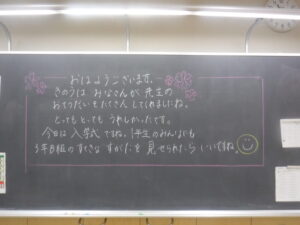 おはようございます。
きのうは みなさんが 先生の
おてつだいもたくさん してくれましたね。
とってもとっても うれしかったです。
今日は 入学式 ですね。1年生 のみんなにも
3年B組の すてきな すがたを 見せられたら いいですね。